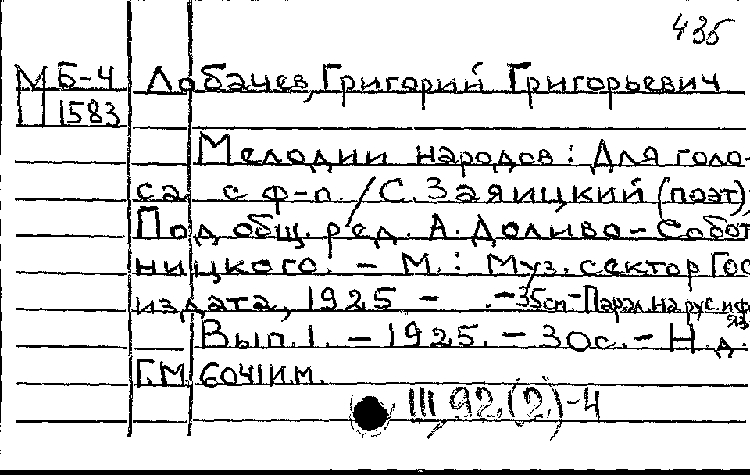 435
М Б-4 Лобачев, Григорий Григорьевич
П 1583
Мелодии народов: Для голо-
са с ф-п. / С. Заяицкий (поэт);
Под общ. ред. А. Доливо-Собот
ницкого. - М.: Муз. сектор Гос
издата, 1925 - . - 35см - Парал. на рус. и фр
яз
Вып. 1. - 1925. - 30с. - Н.д.
Г.М 6041 И.М.
III, 92.(2)-4